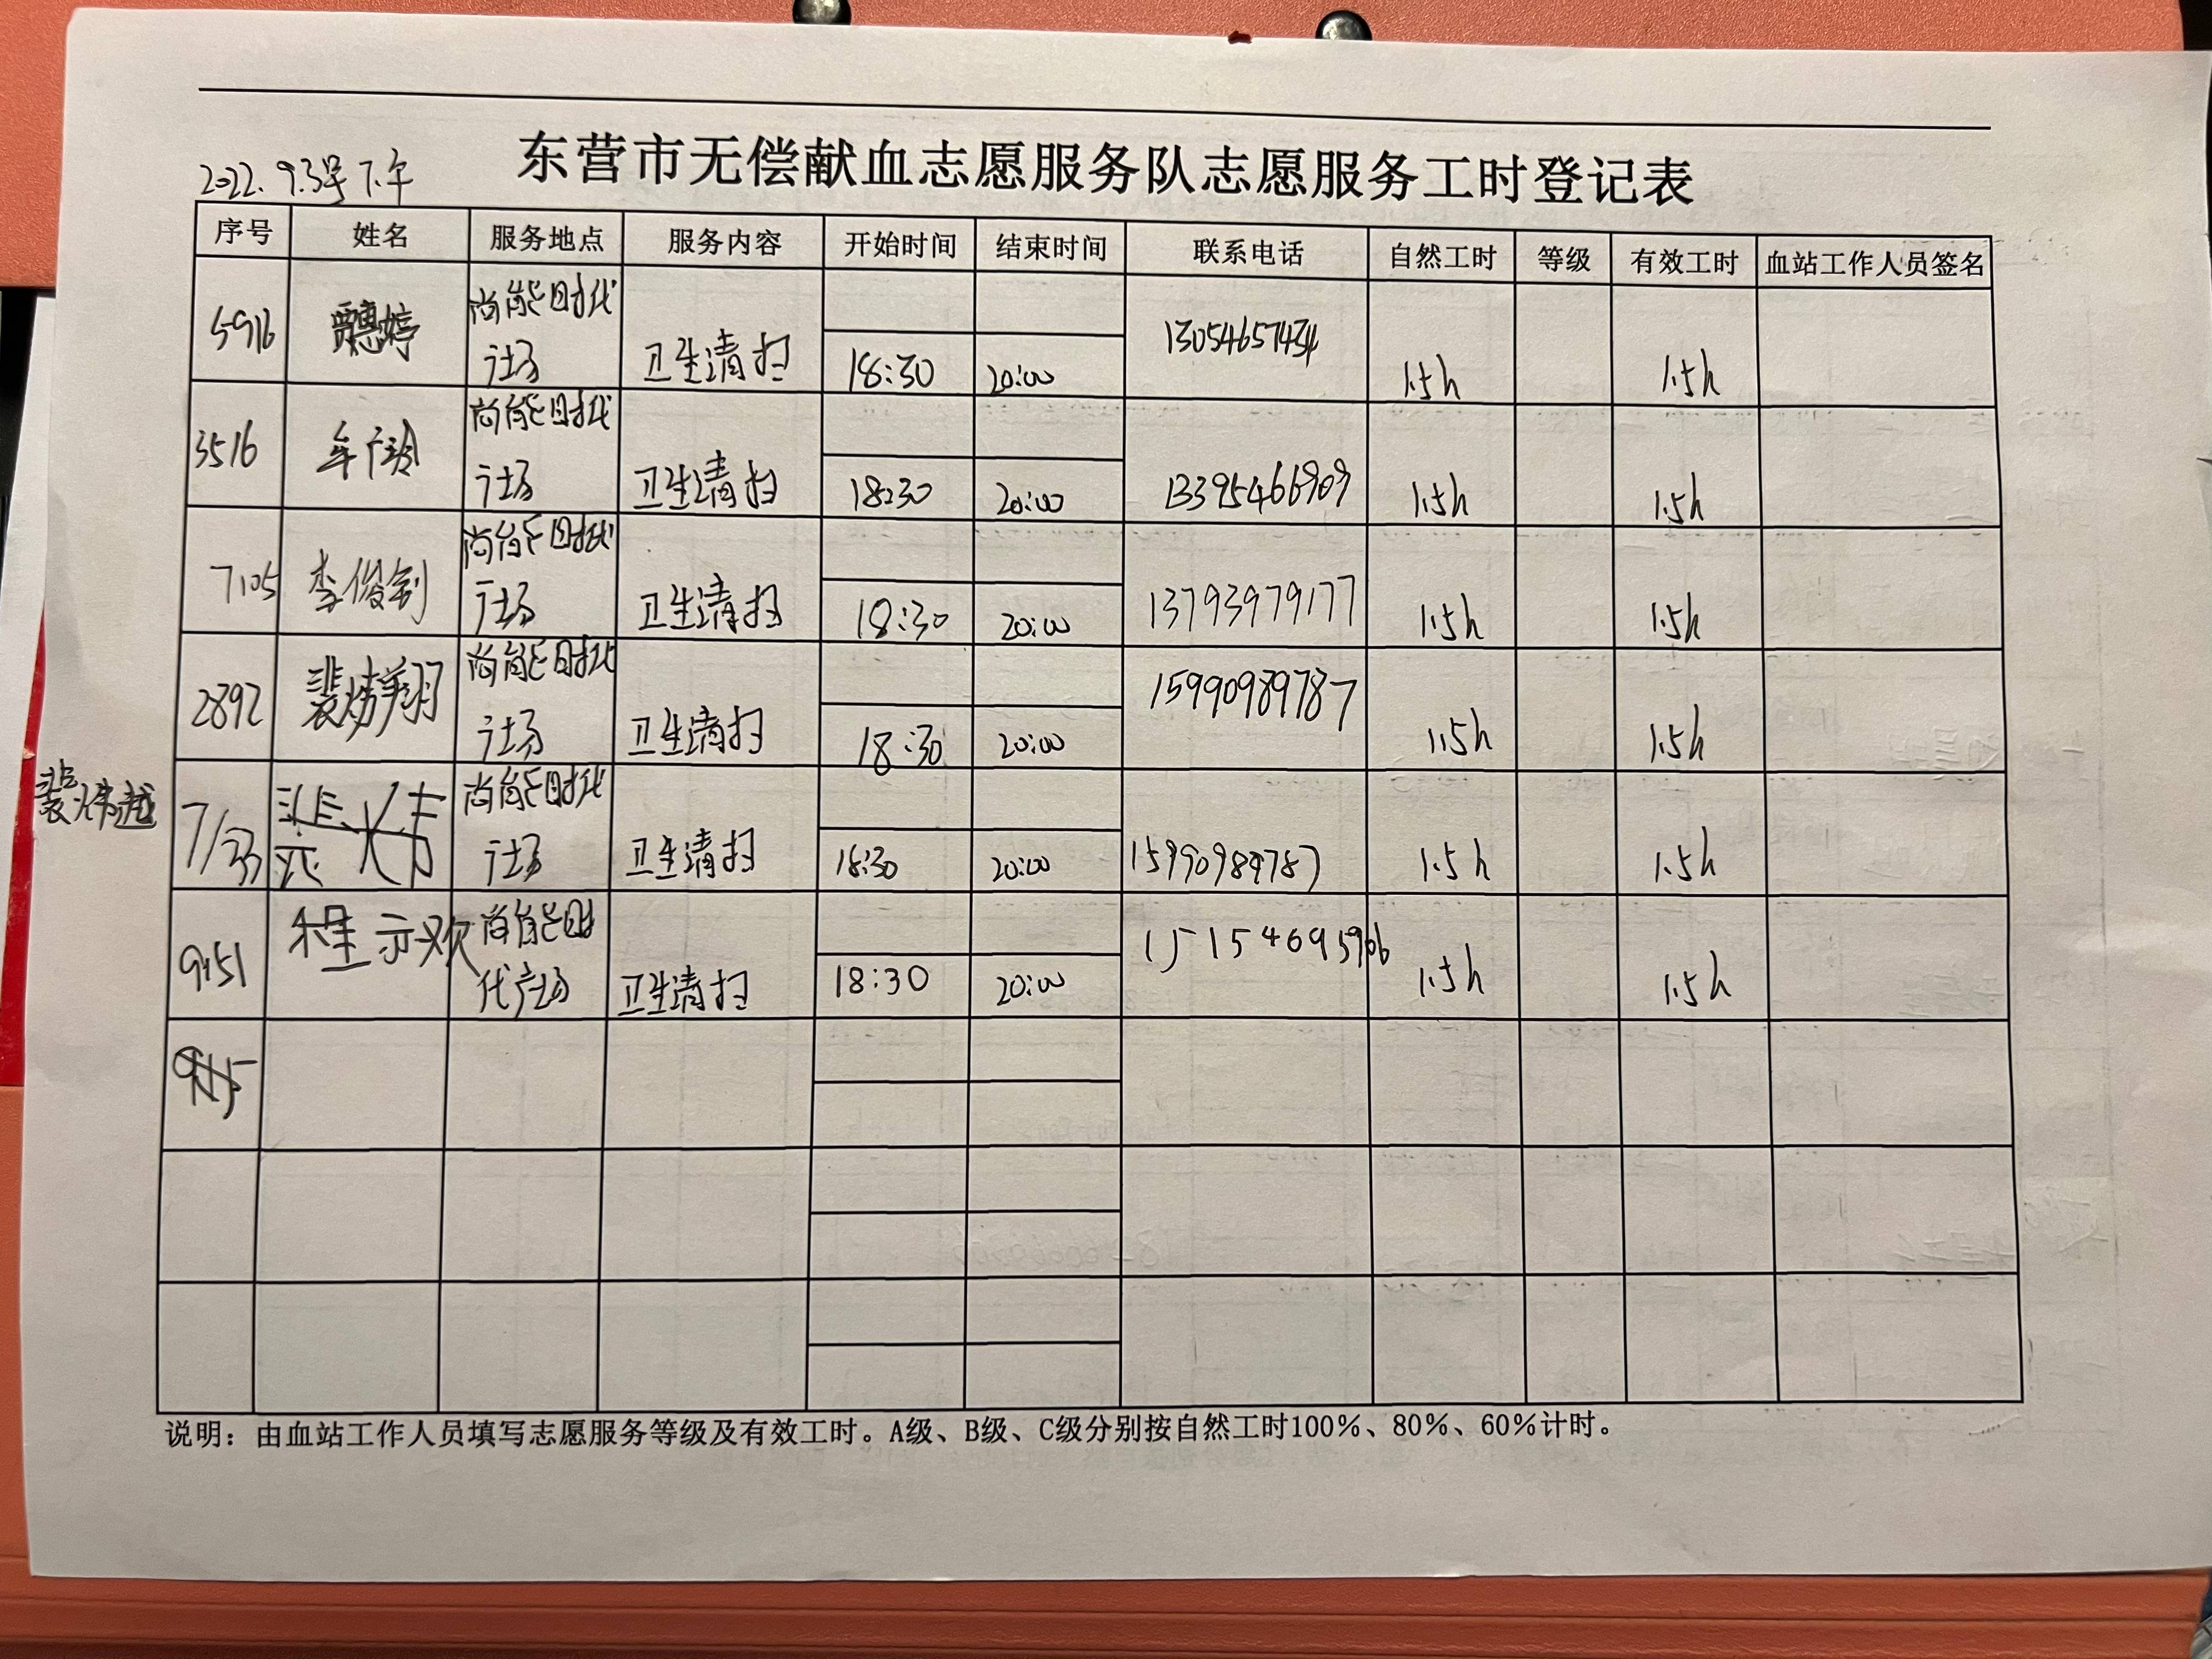 东营市无偿献血志愿服务队志愿服务工时登记表
2022.9.3号下午
序号 姓名 服务地点 服务内容 开始时间 结束时间 联系电话 自然工时 等级 有效工时 血站工作人员签名
5916 贾惠婷 尚能时代广场 卫生清扫 18:30 20:00 13054657434 1.5h 1.5h
3516 牟广玲 尚能时代广场 卫生清扫 18:30 20:00 13395466909 1.5h 1.5h
7105 李俊剑 尚能时代广场 卫生清扫 18:30 20:00 13793979177 1.5h 1.5h
2892 裴炜翔 尚能时代广场 卫生清扫 18:30 20:00 15990989787 1.5h 1.5h
裴炜越 7133 尚能时代广场 卫生清扫 18:30 20:00 15990989787 1.5h 1.5h
9151 程亦欢 尚能时代广场 卫生清扫 18:30 20:00 15154695906 1.5h 1.5h
说明：由血站工作人员填写志愿服务等级及有效工时。A级、B级、C级分别按自然工时100%、80%、60%计时。